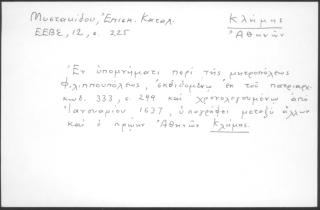 Μυστακίδου, Ἐπισκ. Καταλ.
ΕΕΒΣ, 12, σ. 225
Κλήμης
Ἀθηνῶν
Ἐν ὑπομνήματι περὶ τῆς μητροπόλεως
Φιλιππουπόλεως, ἐκδιδομένῳ ἐκ τοῦ πατριαρχ.
κωδ. 333, σ. 299 καὶ χρονολογουμένῳ ἀπὸ
Ἰανουαρίου 1637, ὑπογράφει μεταξὺ ἄλλων
καὶ ὁ πρῴην Ἀθηνῶν Κλήμης.